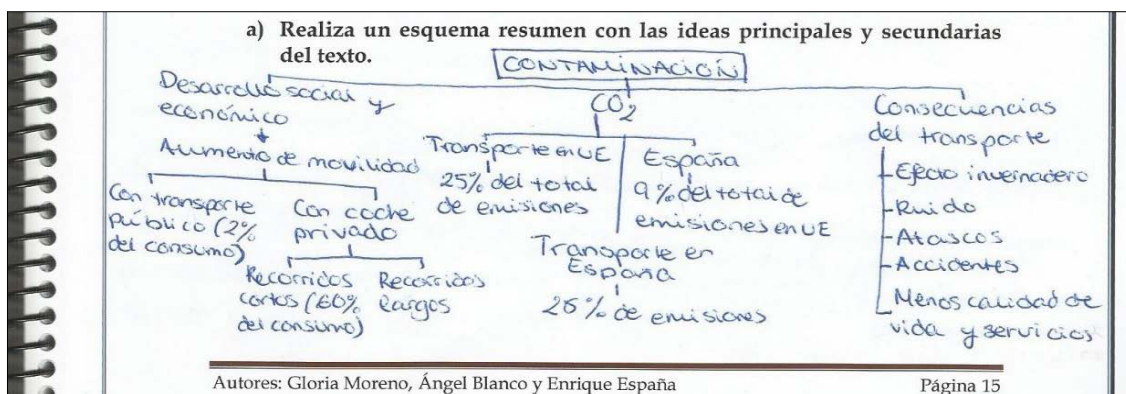 a) Realiza un esquema resumen con las ideas principales y secundarias
del texto.
CONTAMINACIÓN
Desarrollo social y
económico
Aumento de movilidad
Con transporte
público (2%
del consumo)
Con coche
privado
Recorridos
cortos (60%
del consumo)
Recorridos
largos
CO2
Transporte en UE
25% del total
de emisiones
España
9% del total de
emisiones en UE
Transporte en
España
26% de emisiones
Consecuencias
del transporte
- Efecto invernadero
- Ruido
- Atascos
- Accidentes
Menos calidad de
vida y servicios
Autores: Gloria Moreno, Ángel Blanco y Enrique España
Página 15